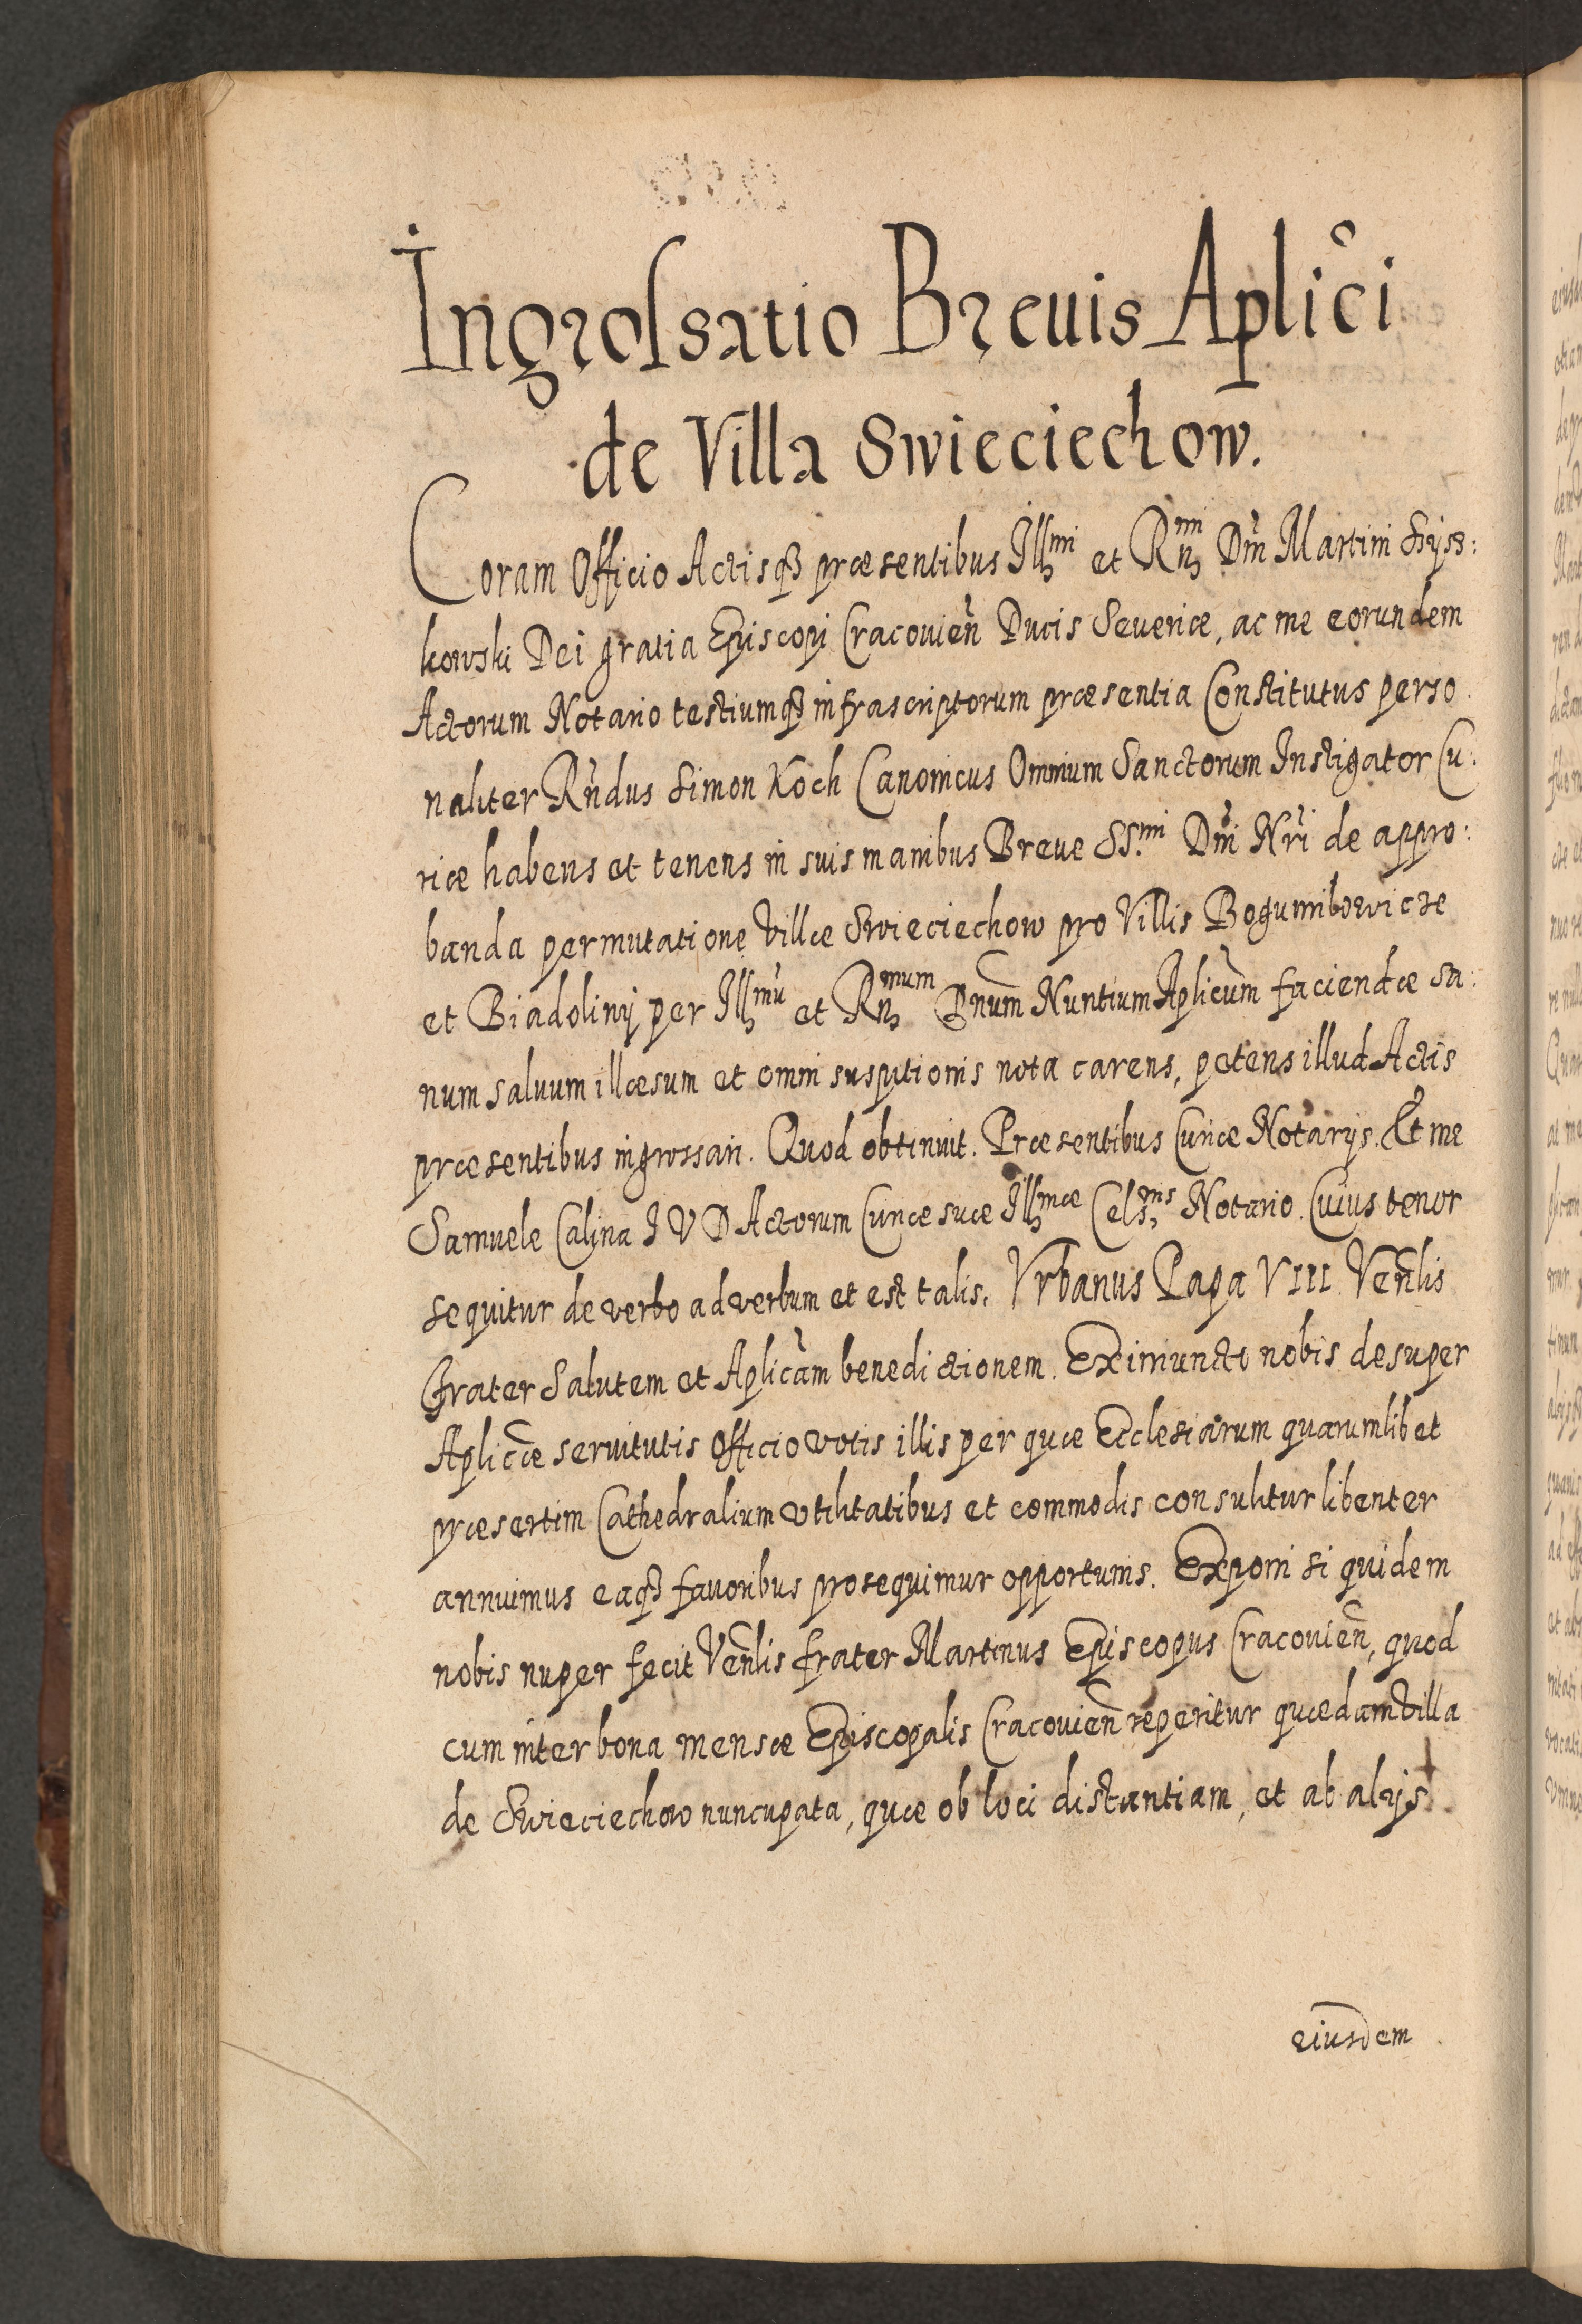 Ingrossatio Breuis Aplici
de Villa Swieciechow.
Coram Officio Actisq3 præsentibus Illmi et Rmi Dni Martini Szysz:
kowski Dei gratia Episcopi Cracouien Ducis Seueriæ, ac me eorundem
Actorum Notario testiumq3 infrascriptorum præsentia Constitutus perso
naliter Rndus Simon Koch Canonicus Omnium Sanctorum Instigator Cu:
riæ habens et tenens in suis manibus Breue SS.mi Dni Nri de appro:
banda permutatione villæ Swieciechow pro Villis Bogumilowicze
et Biadolinÿ per Illmu et Rmum Dnum Nuntium Aplicum faciendæ sa:
num saluum illæsum et omni suspitionis nota carens, petens illud Actis
præsentibus ingrossari. Quod obtinuit. Præsentibus Curiæ Notarijs. Et me
Samuele Calina I V D Actorum Curiæ suæ Illmæ Celsnis Notario. Cuius tenor
sequitur de verbo ad verbum et est talis. Vrbanus Papa VIII. Venlis
frater Salutem et Aplicam benedictionem. Ex iniuncto nobis desuper
Aplicæ seruitutis Officio votis illis per quæ Ecclesiarum quarumlibet
præsertim Cathedralium vtilitatibus et commodis consulitur libenter
annuimus eaq3 fauoribus prosequimur opportunis. Exponi si quidem
nobis nuper fecit Venlis frater Martinus Episcopus Cracouien, quod
cum inter bona mensæ Episcopalis Cracouien reperitur quædam villa
de Swieciechow nuncupata, quæ ob loci distantiam, et ab alijs
eiusdem